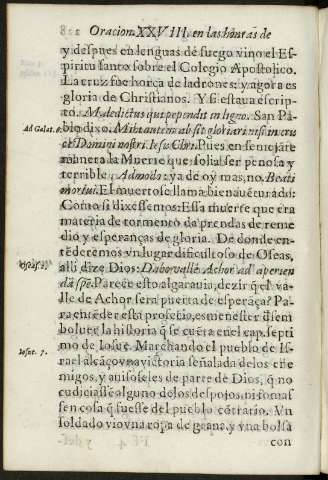 Oracion XXVIII. en las honras de
y despues en lenguas de fuego vino el Es-
piritu santo sobre el Colegio Apostolico.
La cruz fue horca de ladrones: y agora es
gloria de Christianos. Y si estaua escrip-
to. Maledictus qui pendit in ligno. San Pa-
Ad Galat. blo dixo. Mihi autem absit gloriari nisi in cru
ce Domini nostri. Iesu Chri. Pues en semejãte
manera la Muerte que solia ser penosa y
terrible. Admodo: ya de oy mas, no. Beati
mortui. El muerto se llama bienauẽturado:
Como si dixessemos: Essa muerte que era
materia de tormento da prendas de reme
dio y esperanças de gloria. De donde en-
tẽderemos vn lugar dificultoso de Oseas,
alli dize Dios: Dabo vallẽ Achor ad aperien
dã spẽ. Parece esto algarauia, dezir q̃ el va-
lle de Achor sera puerta de esperãça? Pa-
ra entẽder esta profecia, es menester desem
boluer la historia q̃ se cuẽta en el cap. septi
Iosue. 7. mo de Iosue. Marchando el pueblo de Is-
rael alcãço vna victoria señalada de los ene
migos, y auisoles de parte de Dios, q̃ no
cudiciasse alguno de los despojos, ni tomas
sen cosa q̃ fuesse del pueblo cõtrario. Vn
soldado vio vna ropa de grana, y vna bolsa
con